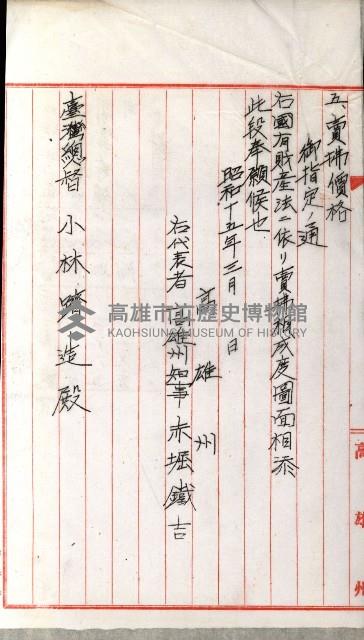 五、賣拂價格
御指定ノ通
右國有財產法ニ依リ賣拂相成度圖面相添
此段奉願候也
昭和十五年三月 日
高雄州
右代表者 高雄州知事 赤堀鐵吉
臺灣總督 小林躋造 殿
高雄州
高雄市立歷史博物館
KAOHSIUNG MUSEUM OF HISTORY